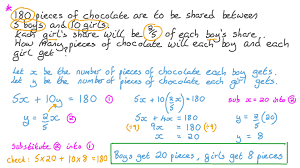 * 180 pieces of chocolate are to be shared between
5 boys and 10 girls.
Each girl's share will be 2/5 of each boy's share.
How many pieces of chocolate will each boy and each
girl get?
Let x be the number of pieces of chocolate each boy gets.
Let y be the number of pieces of chocolate each girl gets.
5x + 10y = 180 ①
y = 2/5 x ②
Substitute ② into ①
5x + 10(2/5 x) = 180
5x + 4x = 180
(÷9) 9x = 180 (÷9)
x = 20
sub x = 20 into ②
y = 2/5 (20)
y = 8
check: 5x20 + 10x8 = 180
Boys get 20 pieces, girls get 8 pieces